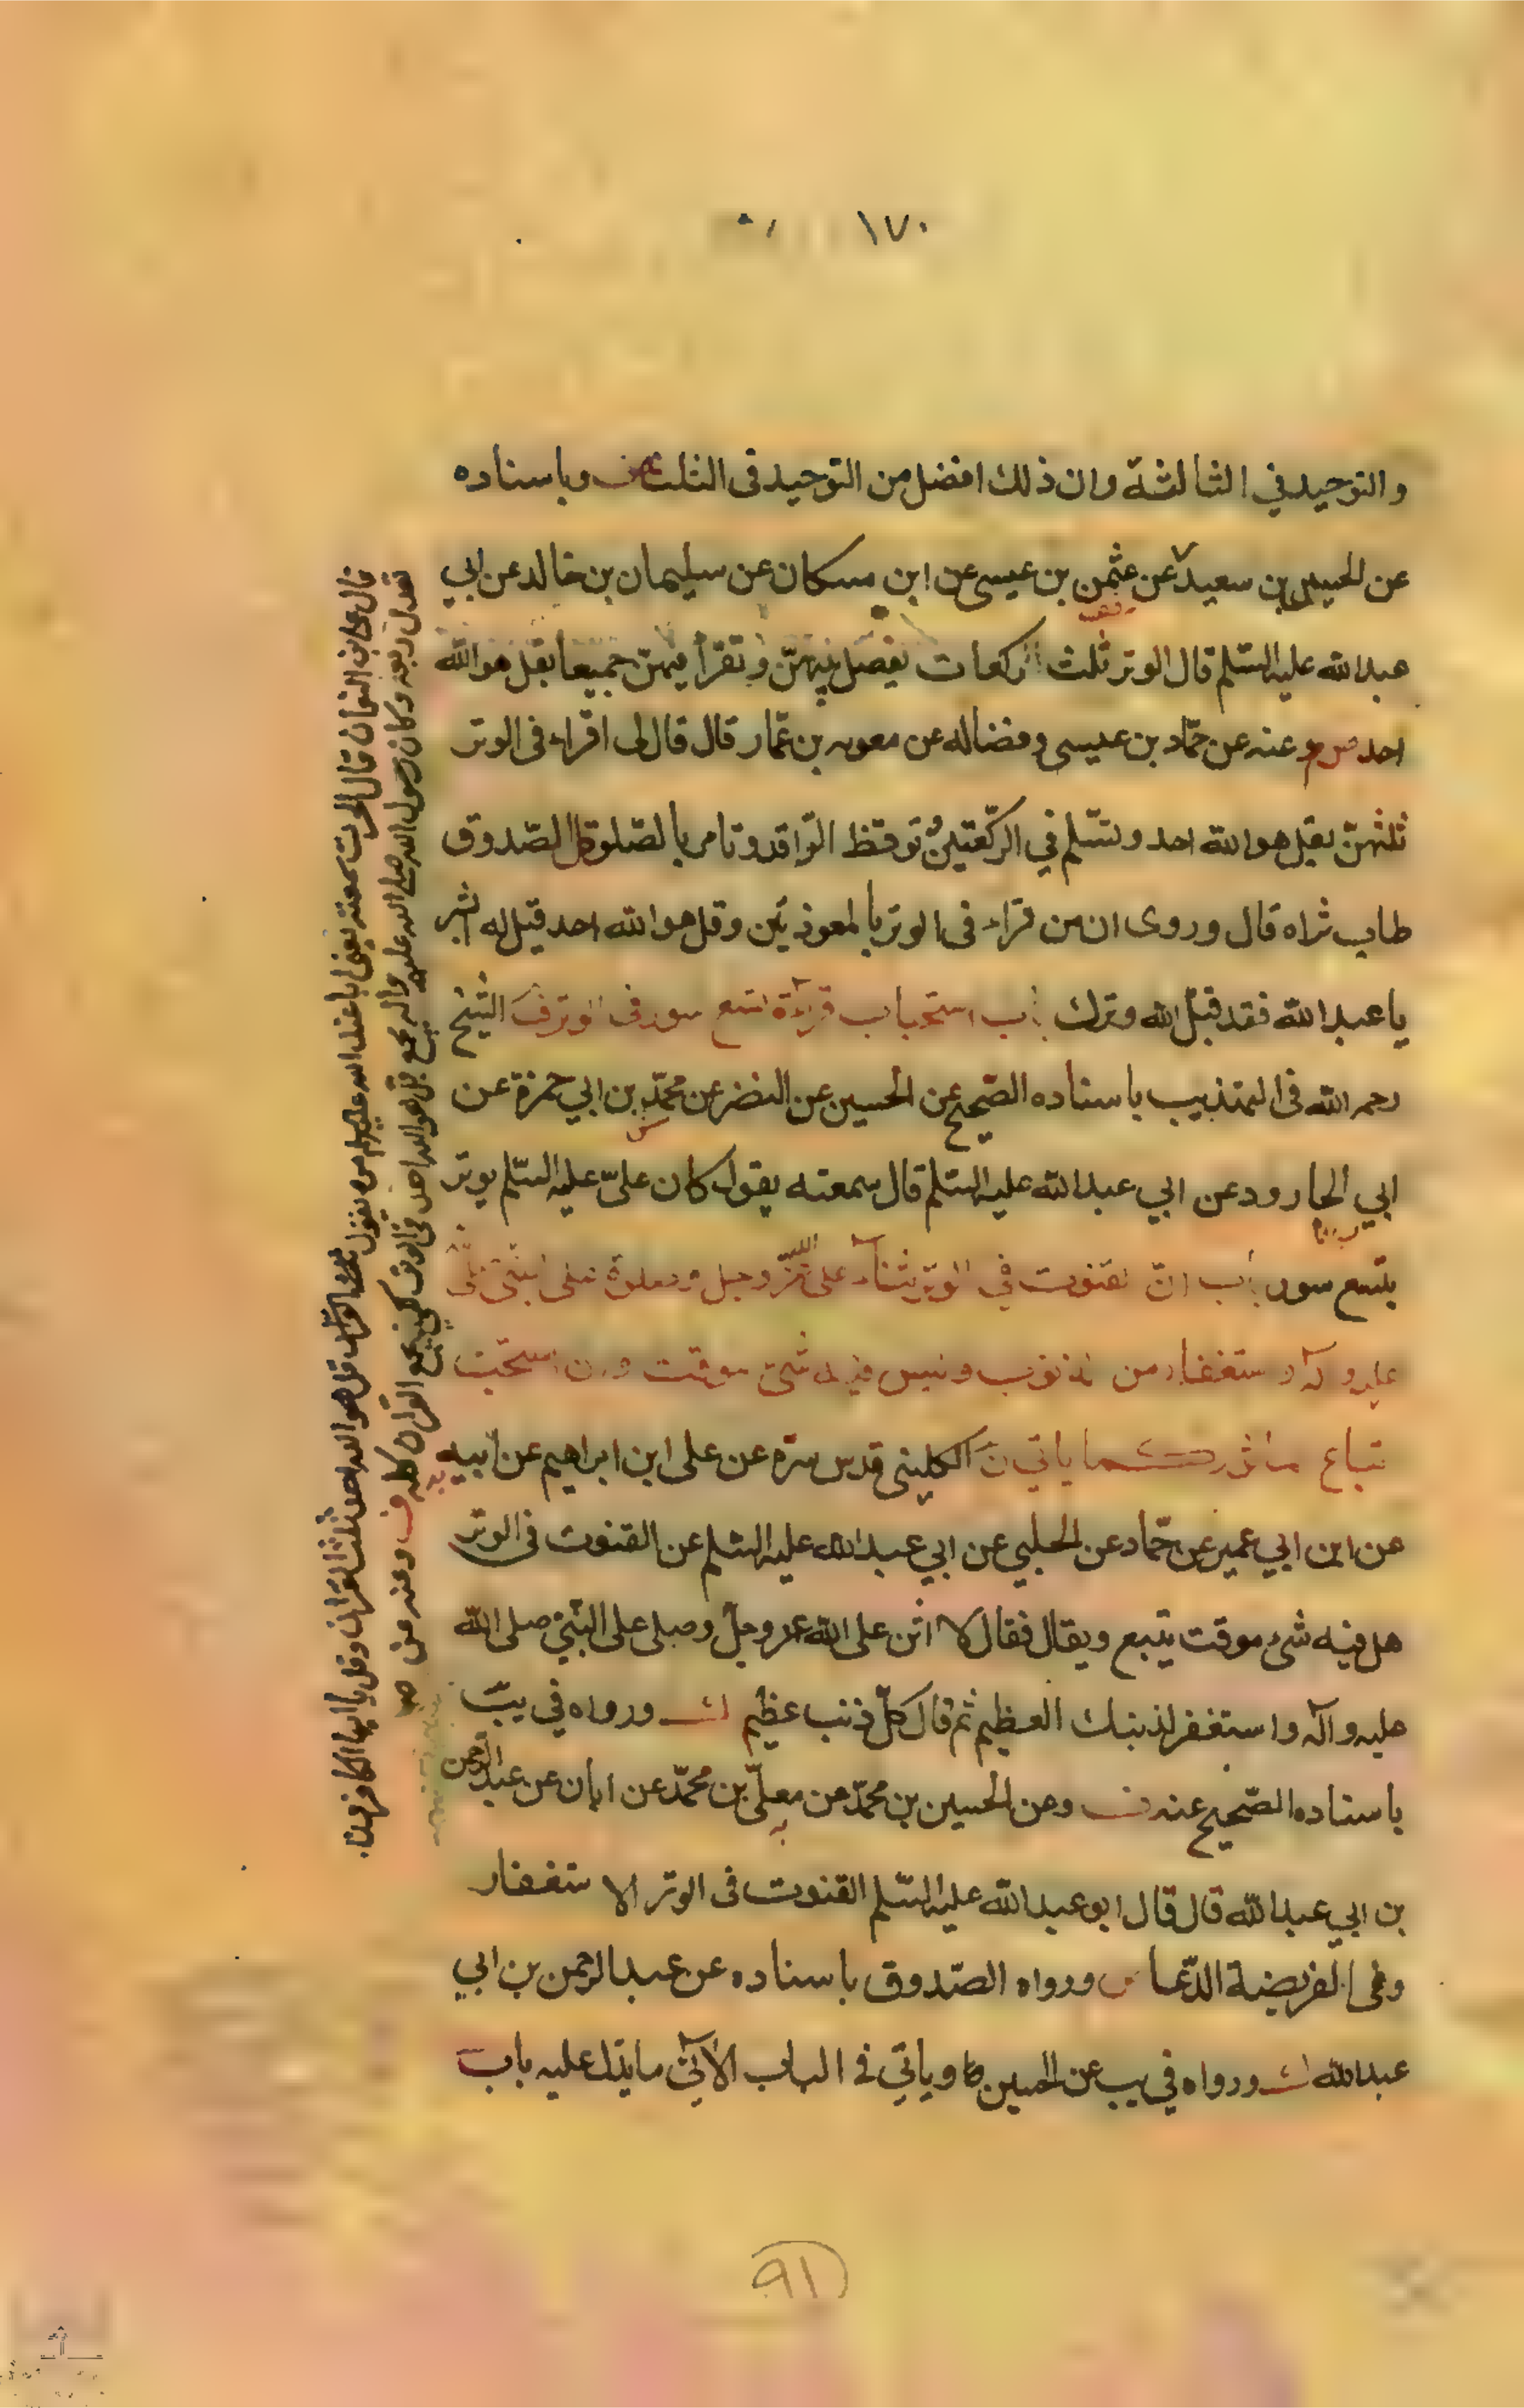 ١٧٠
والتوحيد في الثالثة وان ذلك افضل من التوحيد فى الثلث وباسناده
عن الحسين بن سعيد عن عثمن بن عيسى عن ابن مسكان عن سليمان بن خالد عن ابي
عبدالله عليه السّلم قال الوتر ثلث ركعات يفصل بينهنّ وتقرأ فيهنّ جميعا بقل هو الله
احد وعنه عن حمّاد بن عيسى وفضاله عن معويه بن عمّار قال قال لى اقراء فى الوتر
ثلثهنّ بقل هو الله احد وتسّلم في الركّعتين توقظ الرّاقد وتامر بالصّلوة قال الصّدوق
طاب ثراه قال وروى ان من قراء فى الوتر بالمعوذتين وقل هو الله احد قيل له ابشر
يا عبدالله فقد قبل الله وترك باب استحباب قرآءة تسع سور فى الوتر الشيخ
رحمه الله فى التهذيب باسناده الصّحيح عن الحسين عن النضر عن محمّد بن ابي حمزة عن
ابي الجارود عن ابي عبدالله عليه السّلم قال سمعته يقول كان علىّ عليه السّلم يوتر
بتسع سور باب انّ القنوت في الوتر ثنآء على الله عزّ وجل وصلوة على النبيّ صلّى
عليه وآله واستغفار من الذنوب وليس فيه شئ موقت وان استحبّت
اتباع ما ياتي الكلينى قدس سرّه عن على ابن ابراهيم عن ابيه
عن ابن ابي عمير عن حمّاد عن الحلبي عن ابي عبدالله عليه السّلم عن القنوت فى الوتر
هل فيه شئ موقت يتبع ويقال فقال لا اثن على الله عز وجلّ وصلى على النبّي صلى الله
عليه وآله واستغفر لذنبك العظيم ثم قال كلّ ذنب عظيم ورواه في يب
باسناده الصّحيح عنه وعن الحسين بن محمّد عن معلّى بن محمّد عن ابان عن عبدالرحمن
بن ابي عبدالله قال قال ابو عبدالله عليه السّلم القنوت فى الوتر الاستغفار
وفى الفريضة الدّعا ورواه الصّدوق باسناده عن عبدالرحمن بن ابي
عبدالله ورواه في يب عن الحسين وياتي فى الباب الآتي ما يدّل عليه باب
قال على بن النعمان قال الحرث سمعته يعنى ابا عبد الله عليه السلم وهو يقول قل هو الله احد ثلث القران وقل يا ايها الكافرون
تعدل ربعه وكان رسول الله صلى الله عليه واله يجمع قل هو الله احد فى الوتر لكى يجمع القران كله وعنه عن
٩١